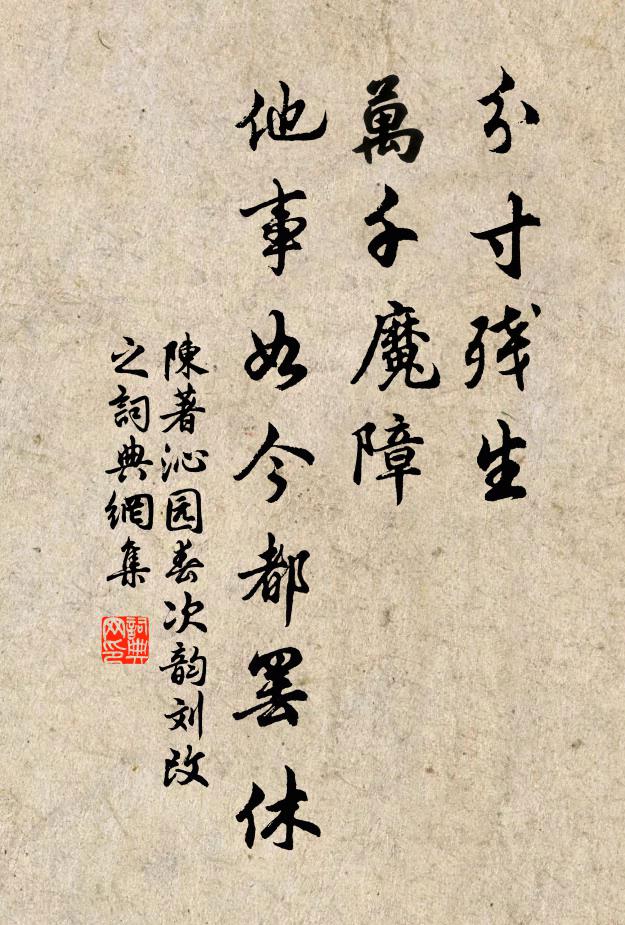 分寸残生
萬千魔障
他事如今都罢休
陳著沁园春次韵刘改
之詞典網集
詞典网印